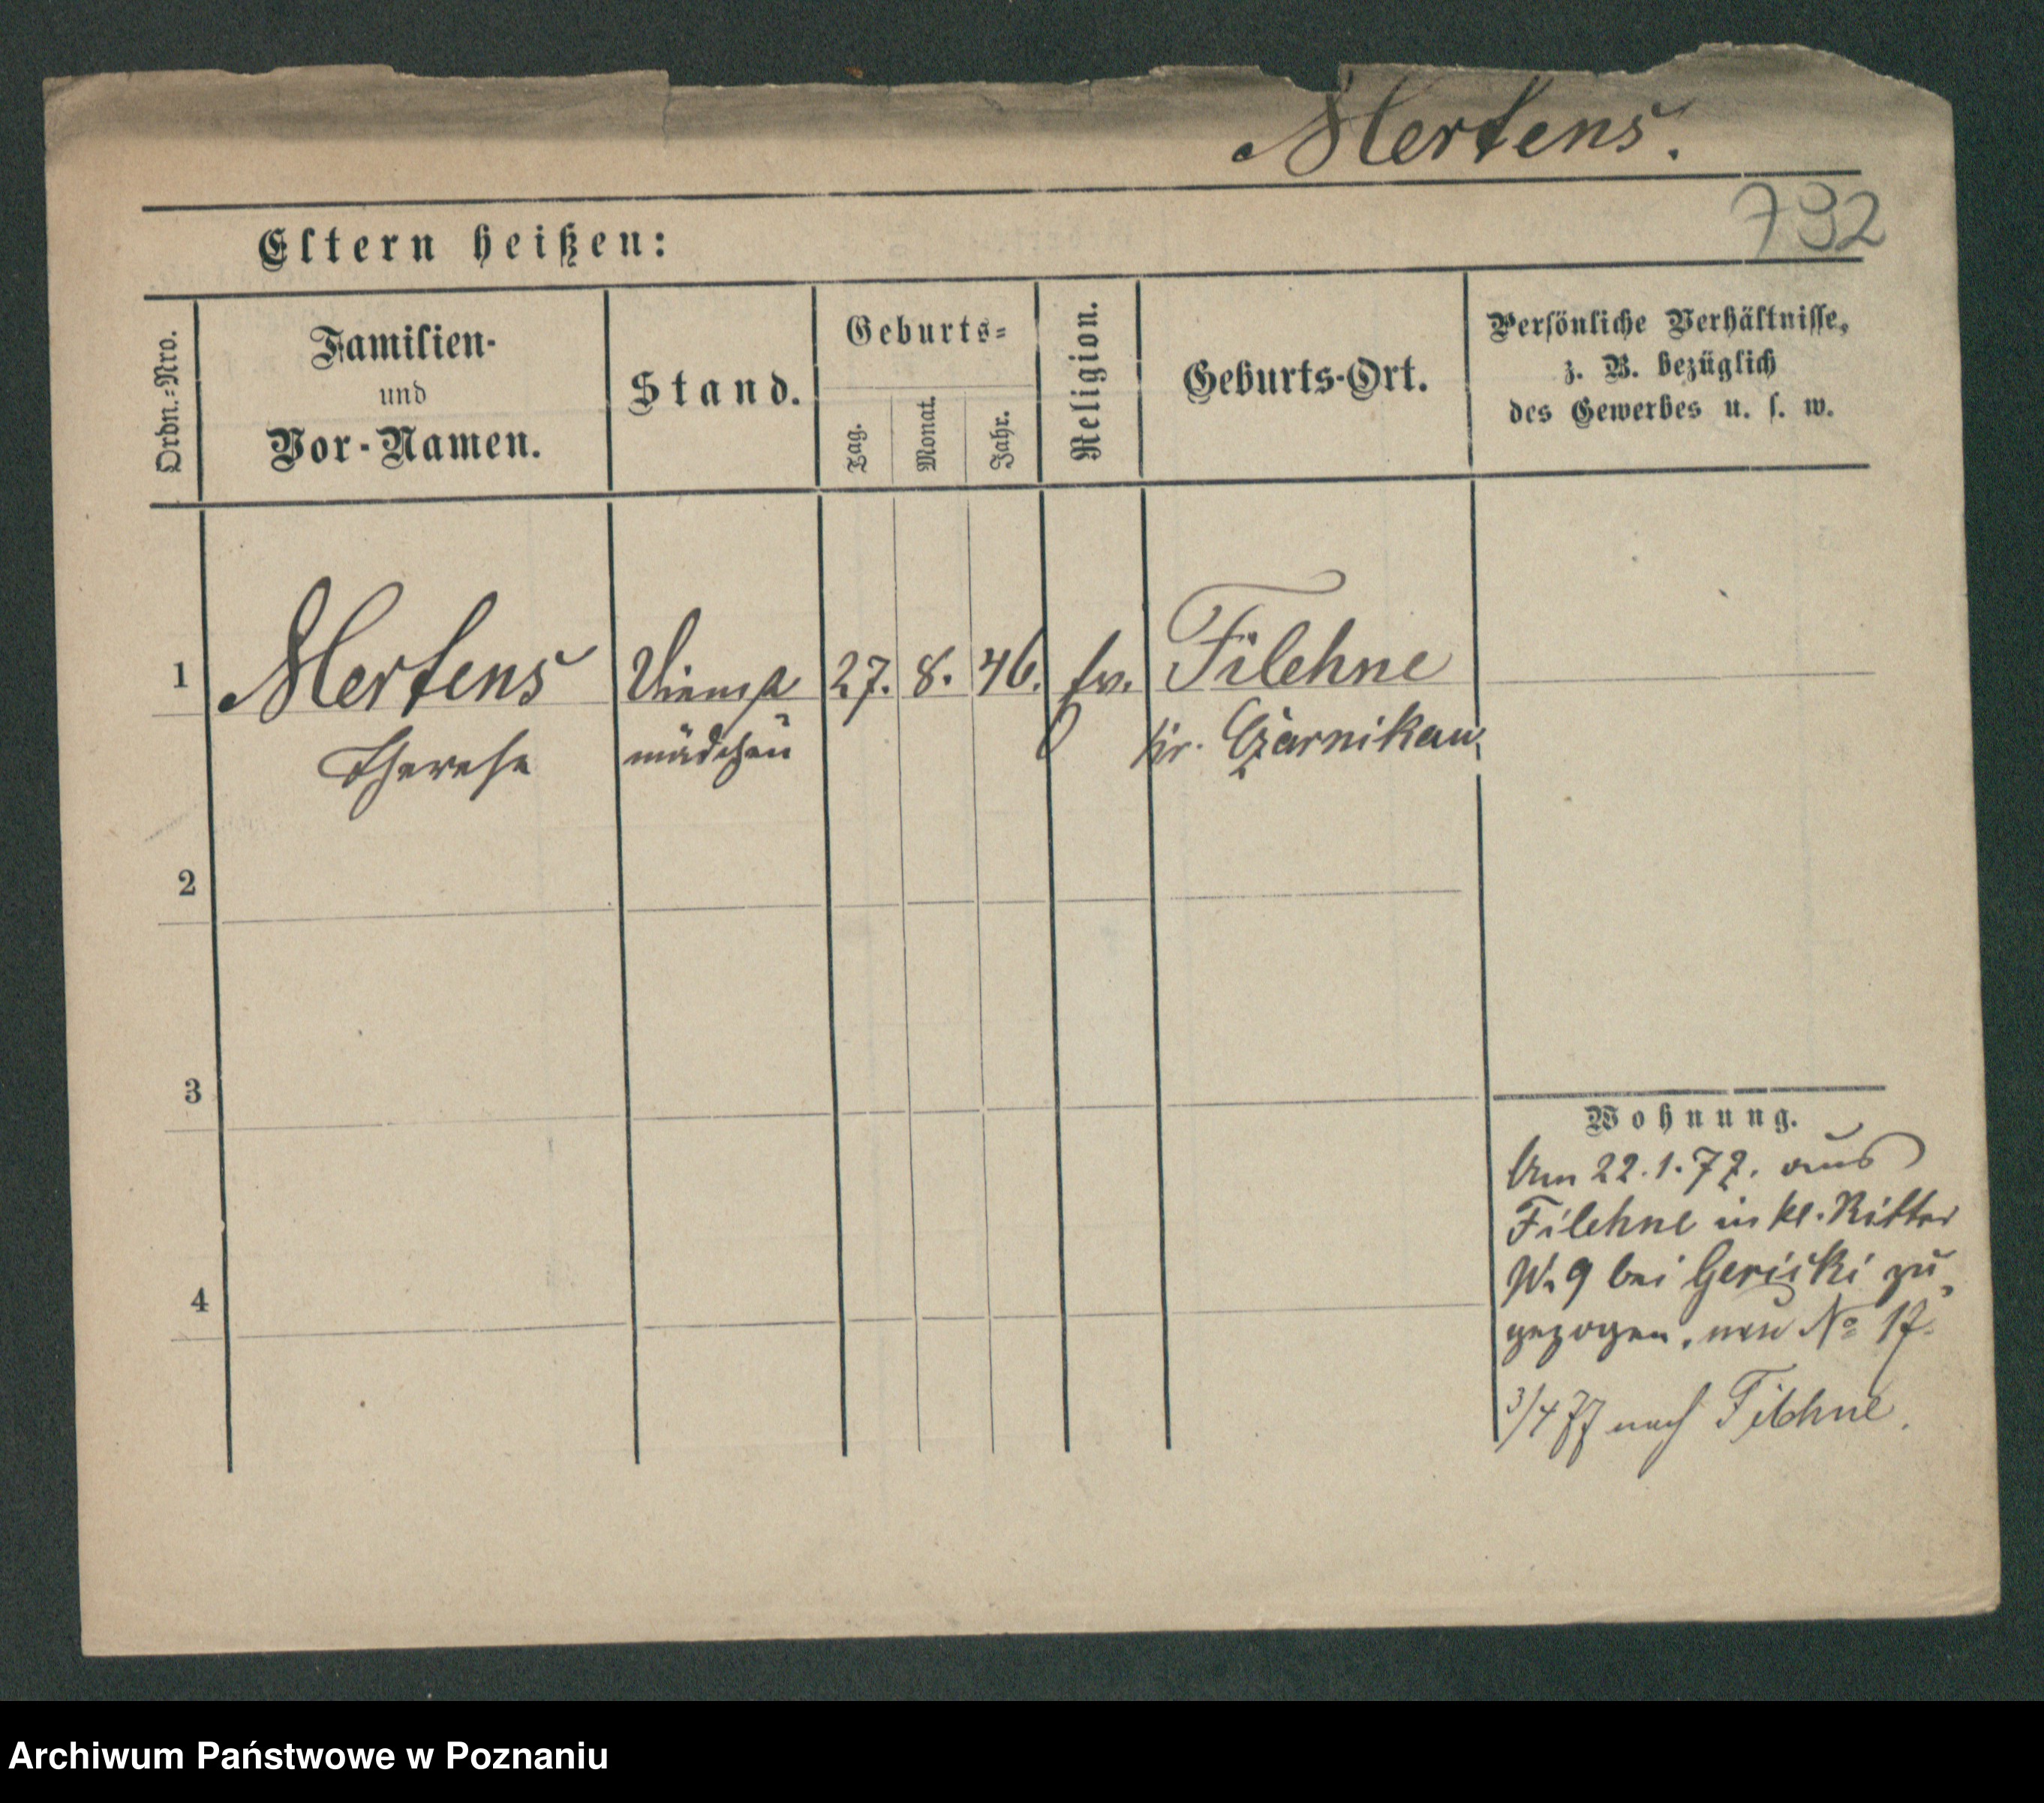 Mertens.
792
Eltern heißen:
Ordn.=Nro.
Familien-
und
Vor-Namen.
Stand.
Geburts=
Tag.
Monat.
Jahr.
Religion.
Geburts-Ort.
Persönliche Verhältnisse,
z. B. bezüglich
des Gewerbes u. s. w.
1 Mertens Dienst 27. 8. 46. ev. Filehne
Therese mädchen Kr. Czarnikau
2
3
4
Wohnung.
Am 22.1.72. aus
Filehne in kl. Ritter
9 bei zu
gezogen, neu No 17.
3/4 77 nach Filehne.
Archiwum Państwowe w Poznaniu